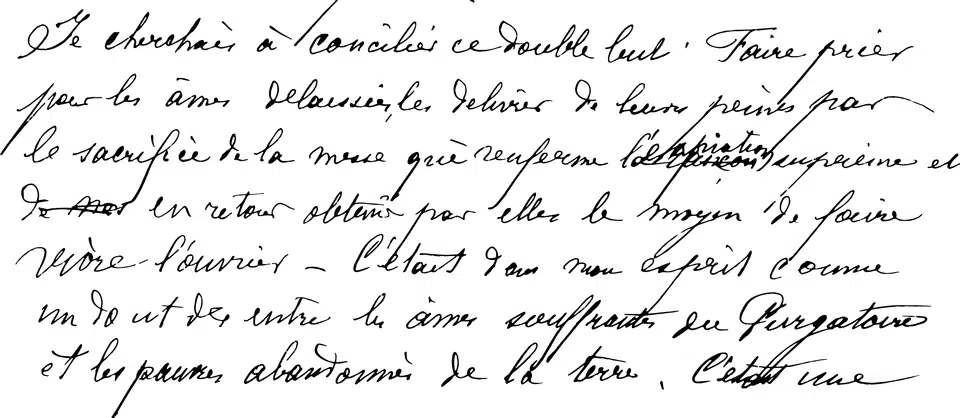 Je cherchais à concilier ce double but. Faire prier
pour les âmes délaissées, les délivrer de leurs peines par
le sacrifice de la messe qui renferme l'expiation suprême et
de nos en retour obtenir par elles le moyen de faire
vivre l'ouvrier - C'était dans mon esprit comme
un do ut des entre les âmes souffrantes du Purgatoire
et les pauvres abandonnés de la terre. C'était une